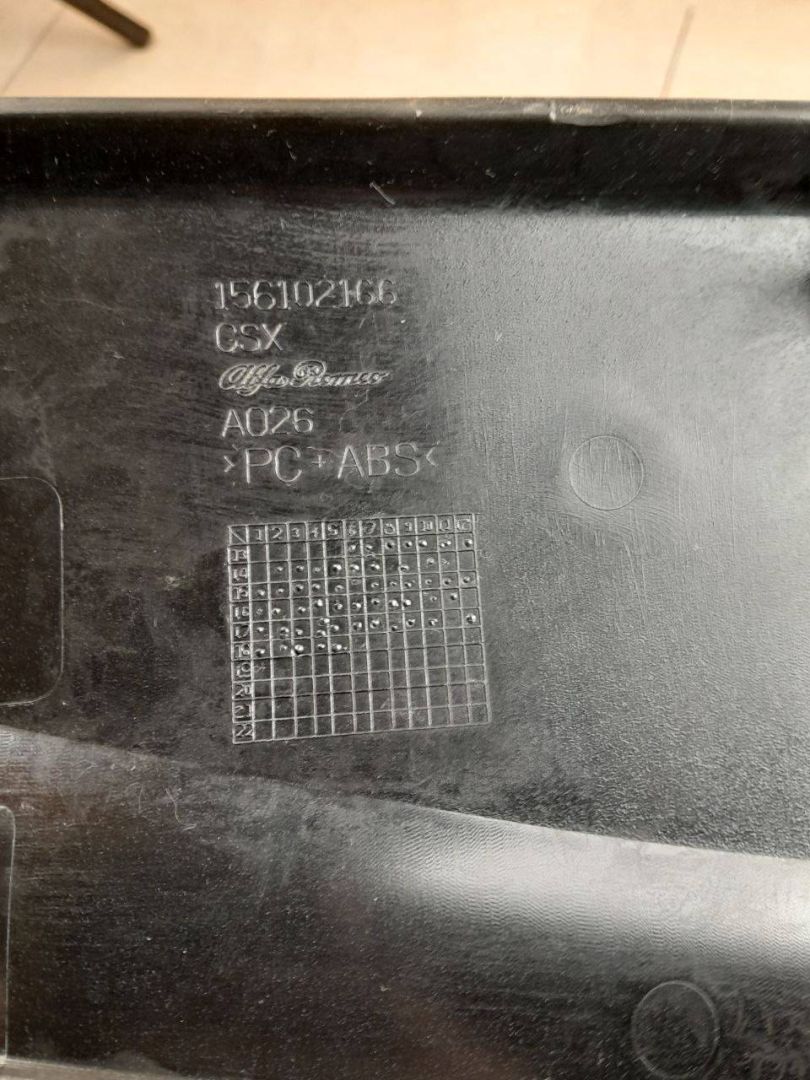 156102166
CSX
Alfa Romeo
A026
>PC+ABS<
1 2 3 4 5 6 7 8 9 10 11 12
13
14
15
16
17
18
19
20
21
22